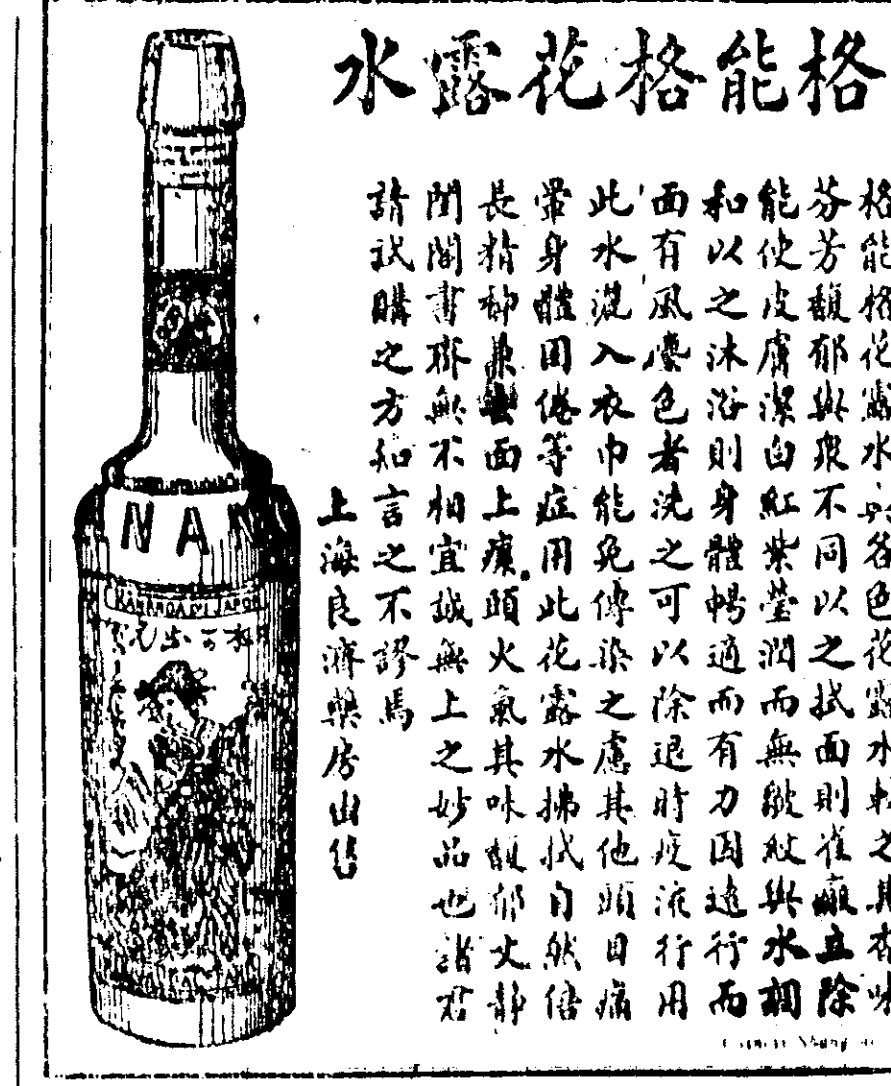 格能格花露水
格能格花露水與各色花露水較之其香味
芬芳馥郁與衆不同以之拭面則雀癍立除
能使皮膚潔白紅紫瑩潤而無皺紋與水相
和以之沐浴則身體暢適而有力因遠行而
面有風塵色者洗之可以除退時疫流行用
此水灑入衣巾能免傳染之慮其他頭目痛
暈身體困倦等症用此花露水拂拭自然倍
長精神兼去面上瘰頭火氣其味馥郁文静
閨閣書齋無不相宜誠無上之妙品也諸君
請試購之方知言之不謬焉
上海良濟藥房出售
NAN